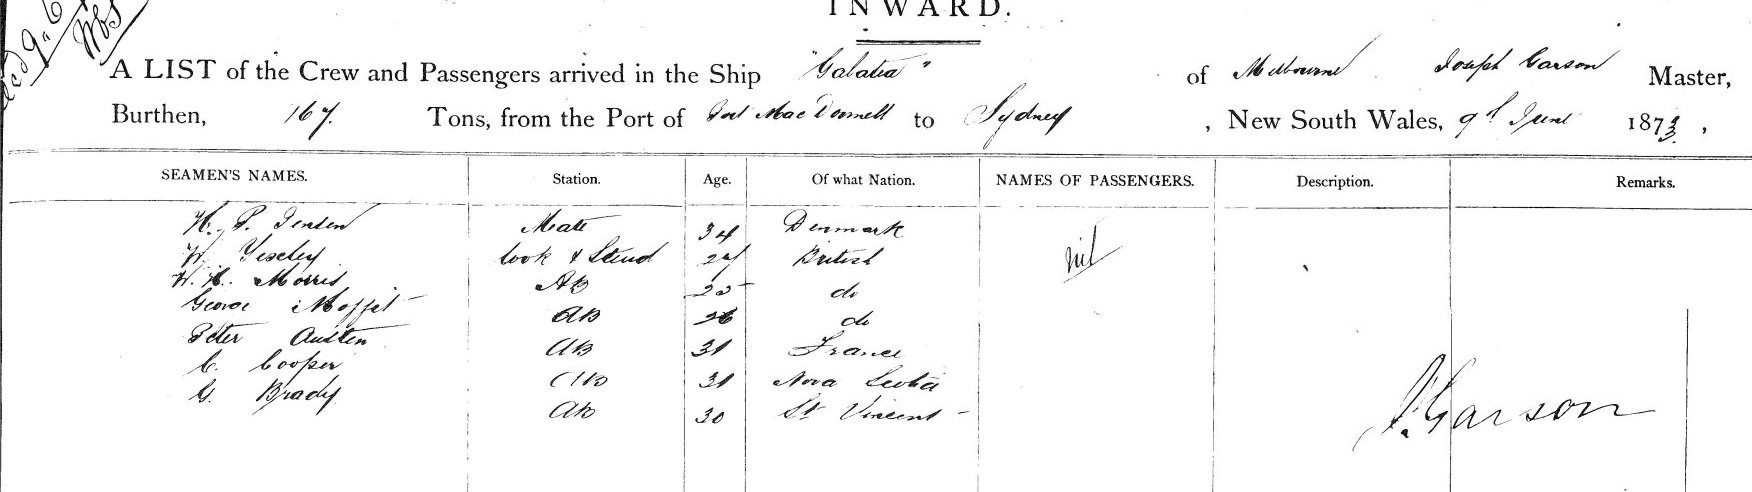 INWARD.
A LIST of the Crew and Passengers arrived in the Ship "Galatea" of Melbourne Joseph Carson Master,
Burthen, 167 Tons, from the Port of Port MacDonnell to Sydney, New South Wales, 9th June 1873,
SEAMEN'S NAMES. Station. Age. Of what Nation. NAMES OF PASSENGERS. Description. Remarks.
H. P. Jensen Mate 34 Denmark nil
W. Cook & Steud 27 British
W. H. Morris AB 25 do
George Moffit AB 26 do
Peter Austen AB 31 France
C. Cooper AB 31 Nova Scotia
G. Brady AB 30 St Vincent
J. Carson